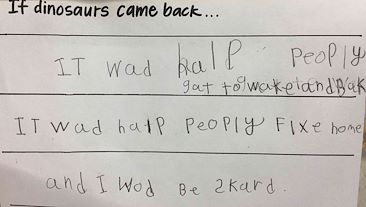 If dinosaurs came back...
IT wad halP PeoPly
gat to wake and Bak
IT wad halP PeoPly Fixe home
and I wod Be skard.